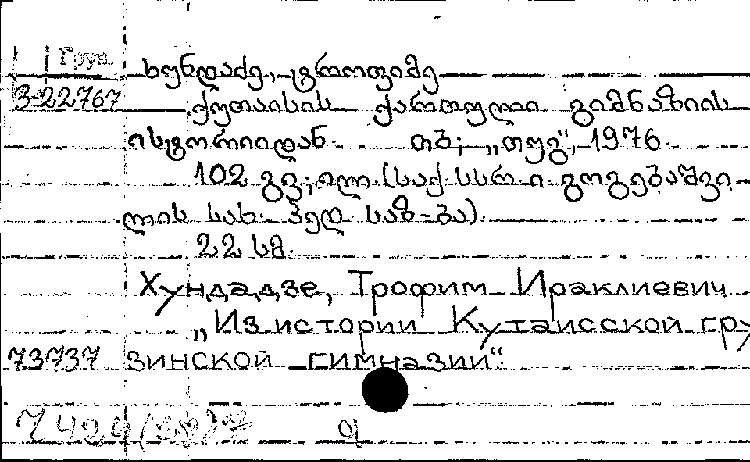 Груз.
3-22767
ხუნდაძე, ტროფიმე
ქუთაისის ქართული გიმნაზიის
ისტორიიდან. თბ; „თუგ“, 1976
102 გვ; ილ (საქ სსრ ი გოგებაშვი
ლის სახ. პედ საზ-ბა)
22 სმ.
Хундадзе, Трофим Ираклиевич
„Из истории Кутаисской гру
73737 зинской гимназии“